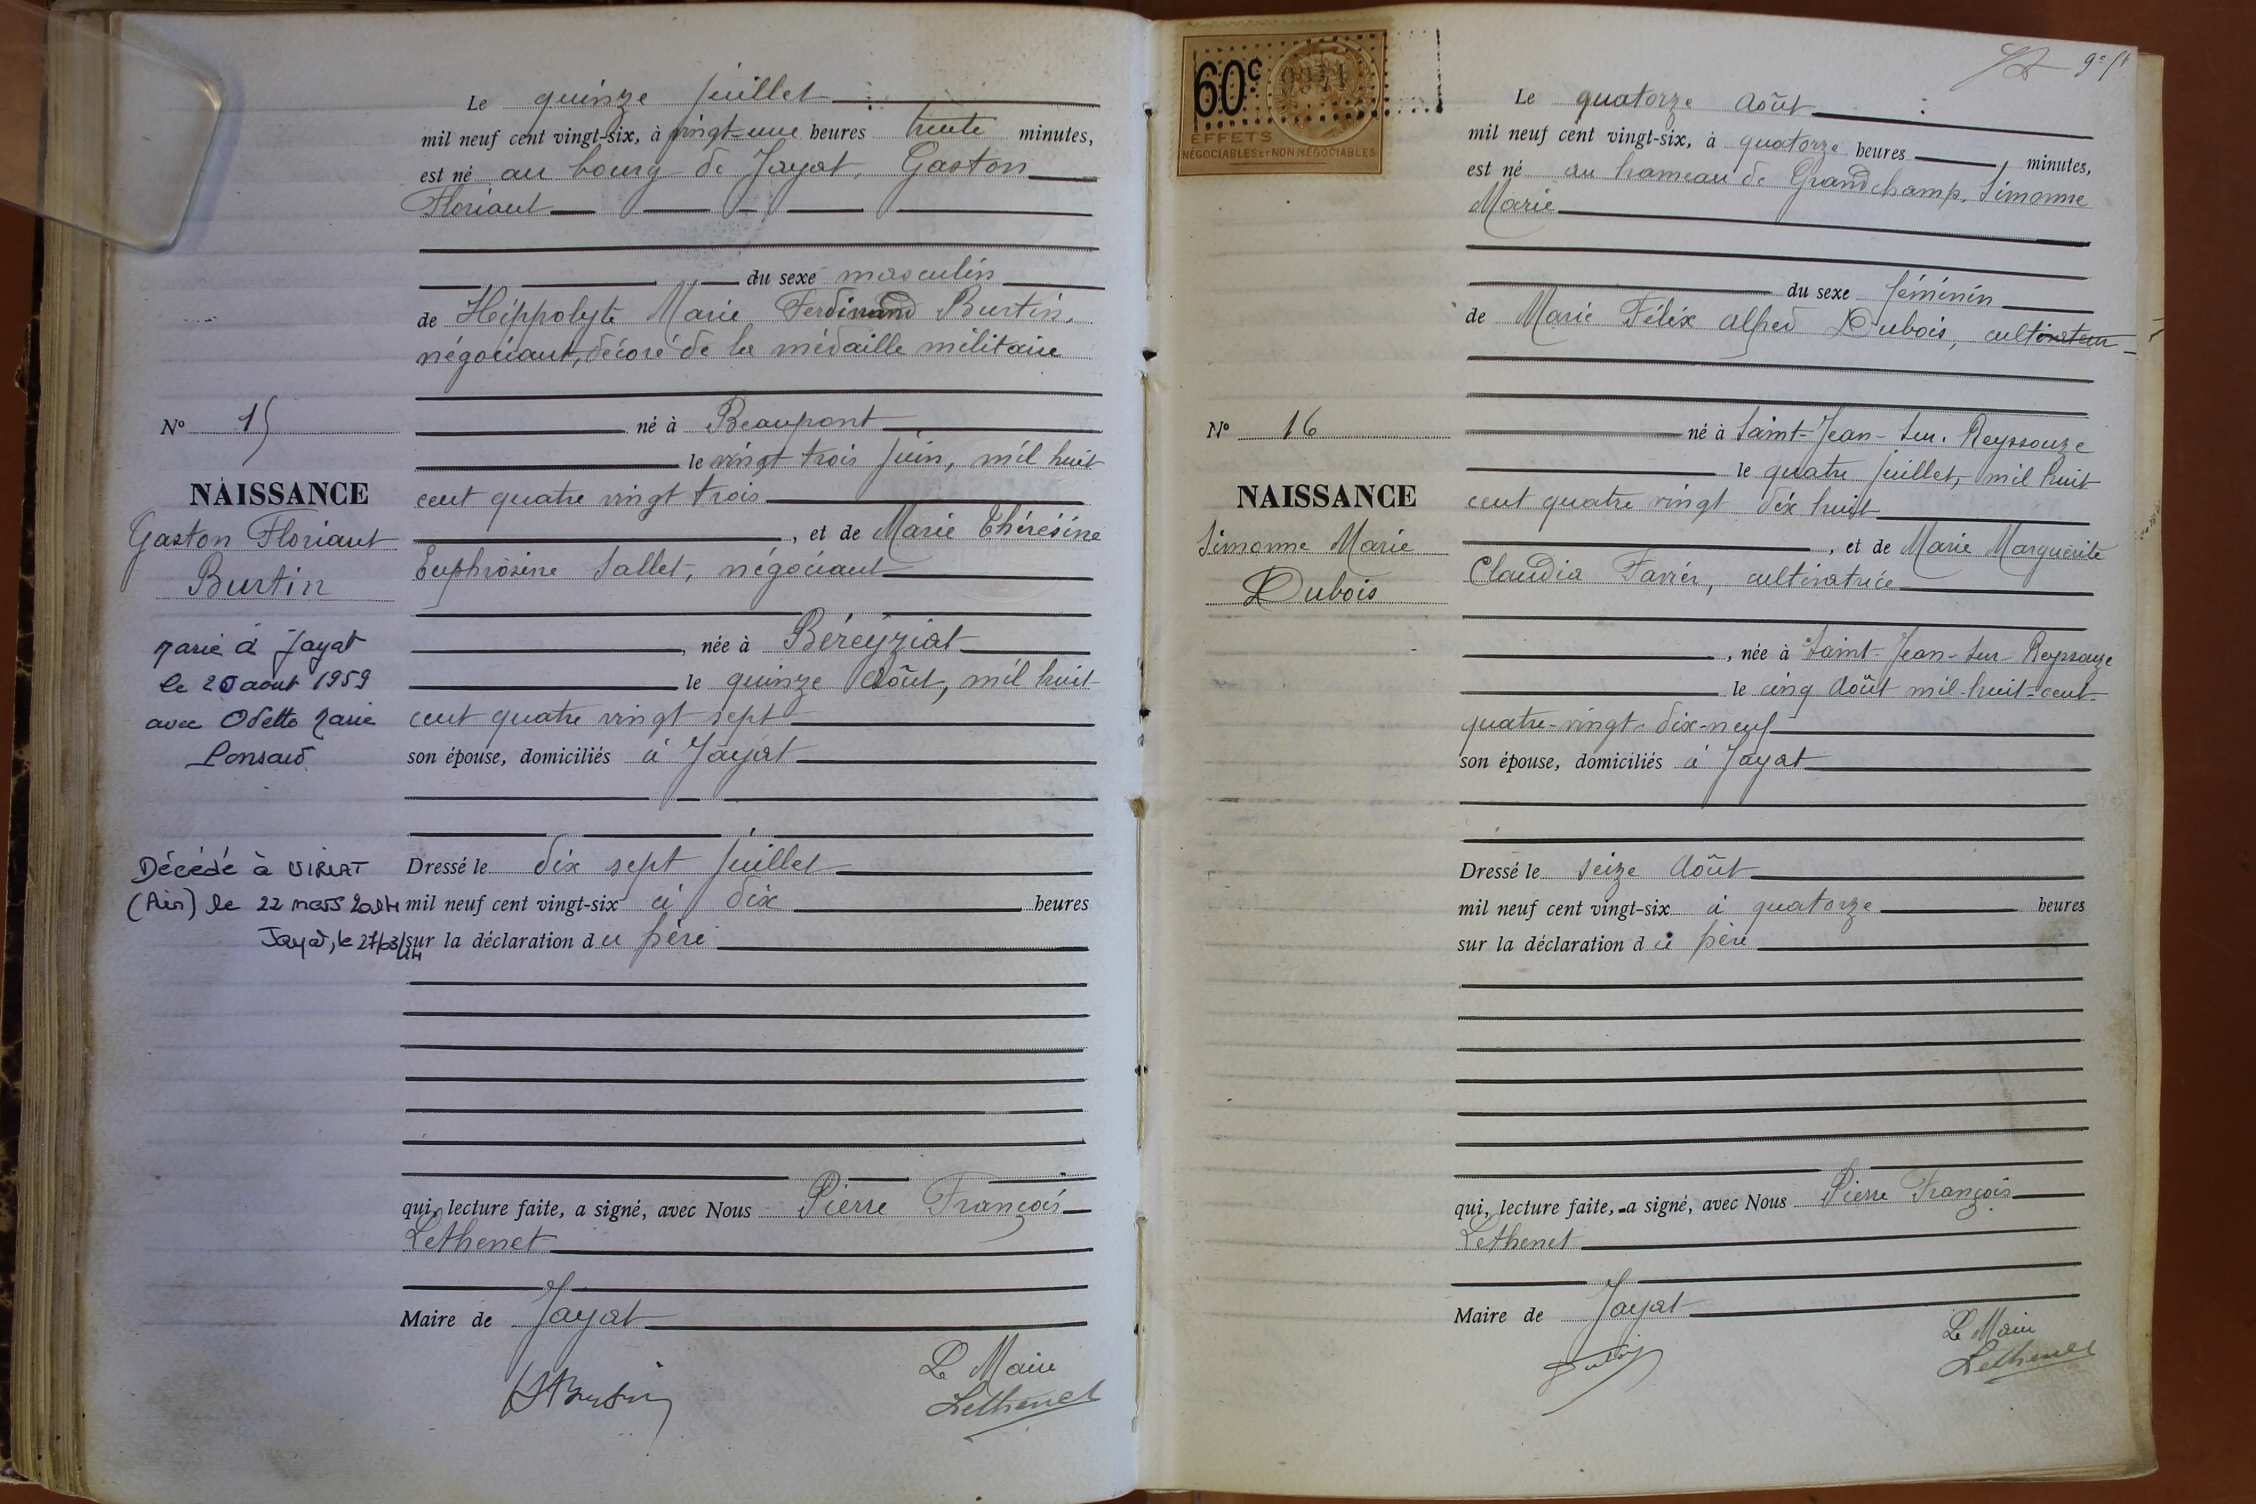 Le quinze juillet
mil neuf cent vingt-six, à vingt-une heures trente minutes,
est né au bourg de Jayat, Gaston
Floriant
du sexe masculin
de Hippolyte Marie Ferdinand Burtin,
négociant, décoré de la médaille militaire
né à Beaupont
le vingt trois juin, mil huit
cent quatre vingt trois
, et de Marie Thérésine
Euphrosine Sallet, négociant
, née à Béreyziat
le quinze Août, mil huit
cent quatre vingt sept
son épouse, domiciliés à Jayat
Dressé le dix sept juillet
mil neuf cent vingt-six à dix heures
sur la déclaration du père
qui, lecture faite, a signé, avec Nous Pierre François
Lethenet
Maire de Jayat
Le Maire
Lethenet
No 15
NAISSANCE
Gaston Floriant
Burtin
Marié à Jayat
le 20 aout 1959
avec Odette Marie
Ponsard
Décédé à VIRIAT
(Ain) le 22 mars 2014
Jayat, le 27/03/14
60c
EFFETS
NÉGOCIABLES ET NON NÉGOCIABLES
Le quatorze Août
mil neuf cent vingt-six, à quatorze heures minutes,
est né au hameau de Grandchamp, Simonne
Marie
du sexe féminin
de Marie Félix Alfred Dubois, cultivateur
né à Saint-Jean-sur-Reyssouze
le quatre juillet, mil huit
cent quatre vingt dix huit
, et de Marie Marguerite
Claudia Favier, cultivatrice
, née à Saint-Jean-sur-Reyssouze
le cinq Août mil-huit-cent-
quatre-vingt-dix-neuf
son épouse, domiciliés à Jayat
Dressé le seize Août
mil neuf cent vingt-six à quatorze heures
sur la déclaration du père
qui, lecture faite, a signé, avec Nous Pierre François
Lethenet
Maire de Jayat
Le Maire
Lethenet
No 16
NAISSANCE
Simonne Marie
Dubois